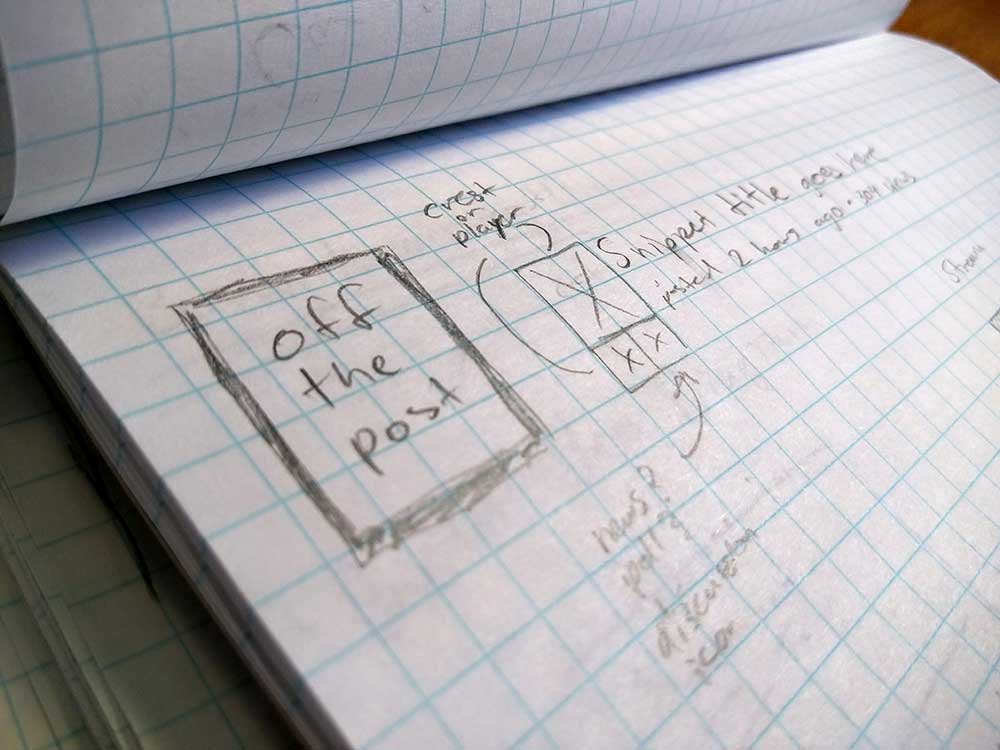 off
the
post
crest
or
player
Snippet title goes here
posted 2 hours ago · 304 likes
news?
poll?
discussion
icon